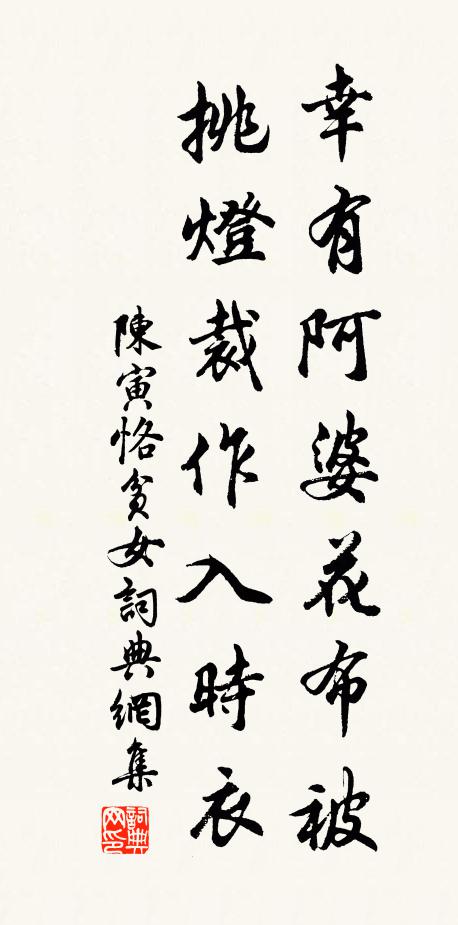 幸有阿婆花布被
挑燈裁作入時衣
陳寅恪貧女詞典網集
詞典網印